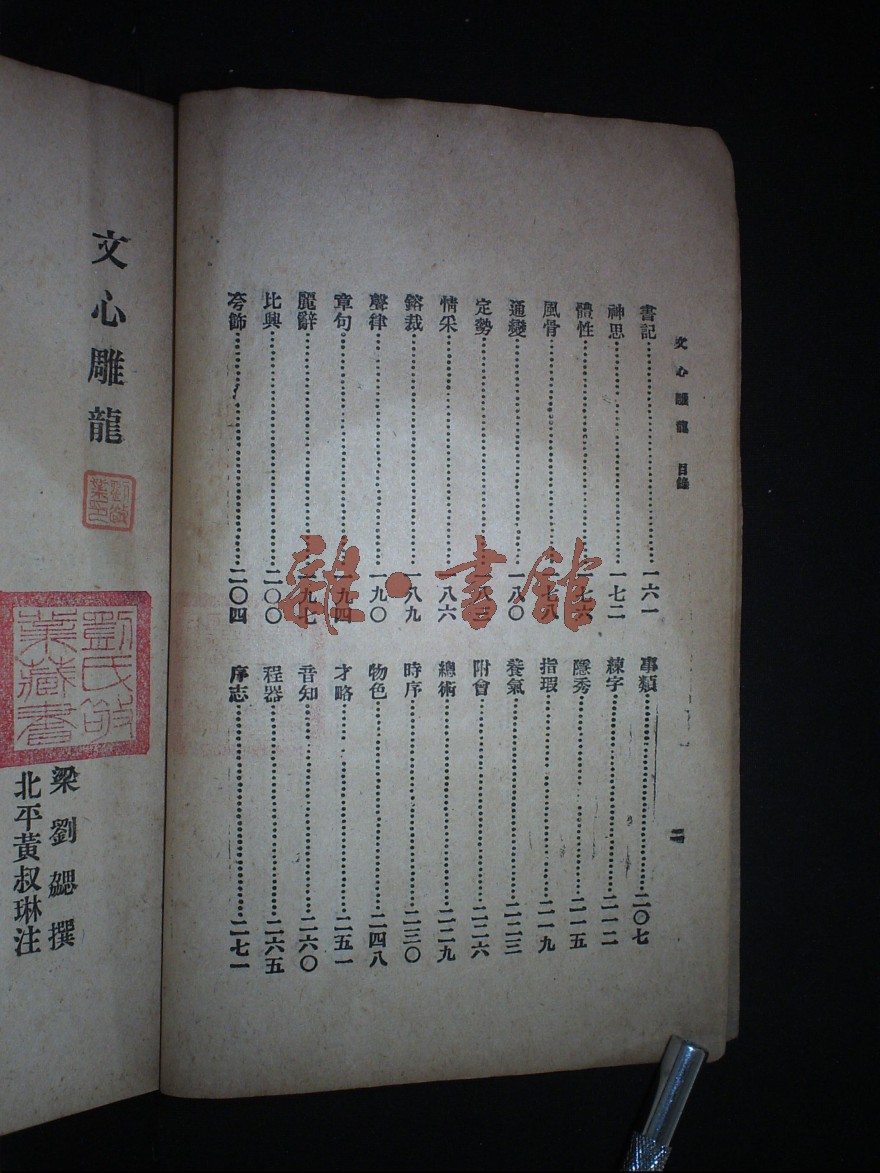 文心雕龍 目錄
書記 一六一
神思 一七二
體性 一七六
風骨 一七八
通變 一八〇
定勢 一八三
情采 一八六
鎔裁 一八九
聲律 一九〇
章句 一九四
麗辭 一九七
比興 二〇〇
夸飾 二〇四
事類 二〇七
練字 二一二
隱秀 二一五
指瑕 二一九
養氣 二二三
附會 二二六
總術 二二九
時序 二三〇
物色 二四八
才略 二五一
音知 二六〇
程器 二六五
序志 二七一
二
雜·書館
文心雕龍
劉氏敬業藏書
梁劉勰撰
北平黃叔琳注